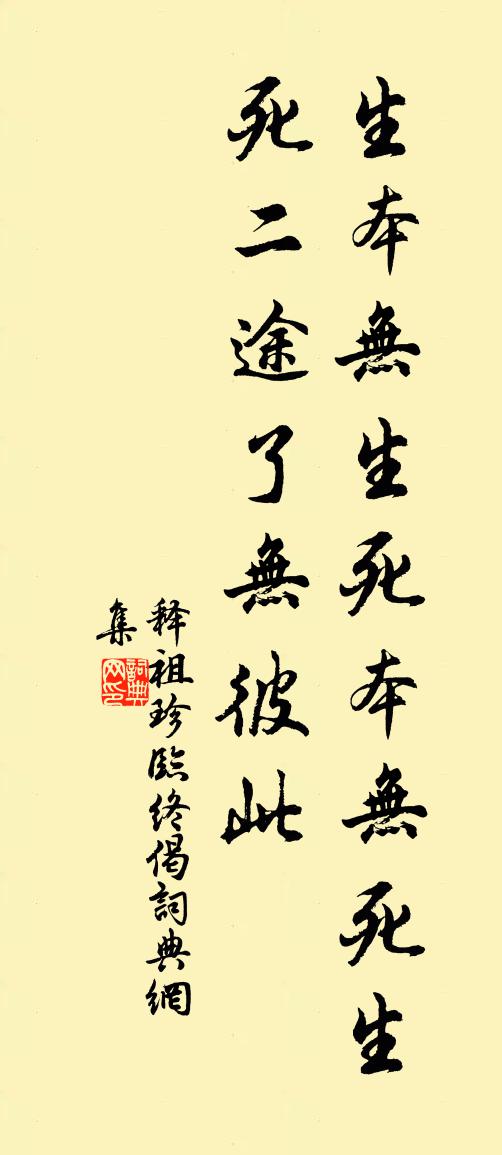 生本無生死本無死生
死二途了無彼此
释祖珍臨终偈詞典網
集
詞典
网印